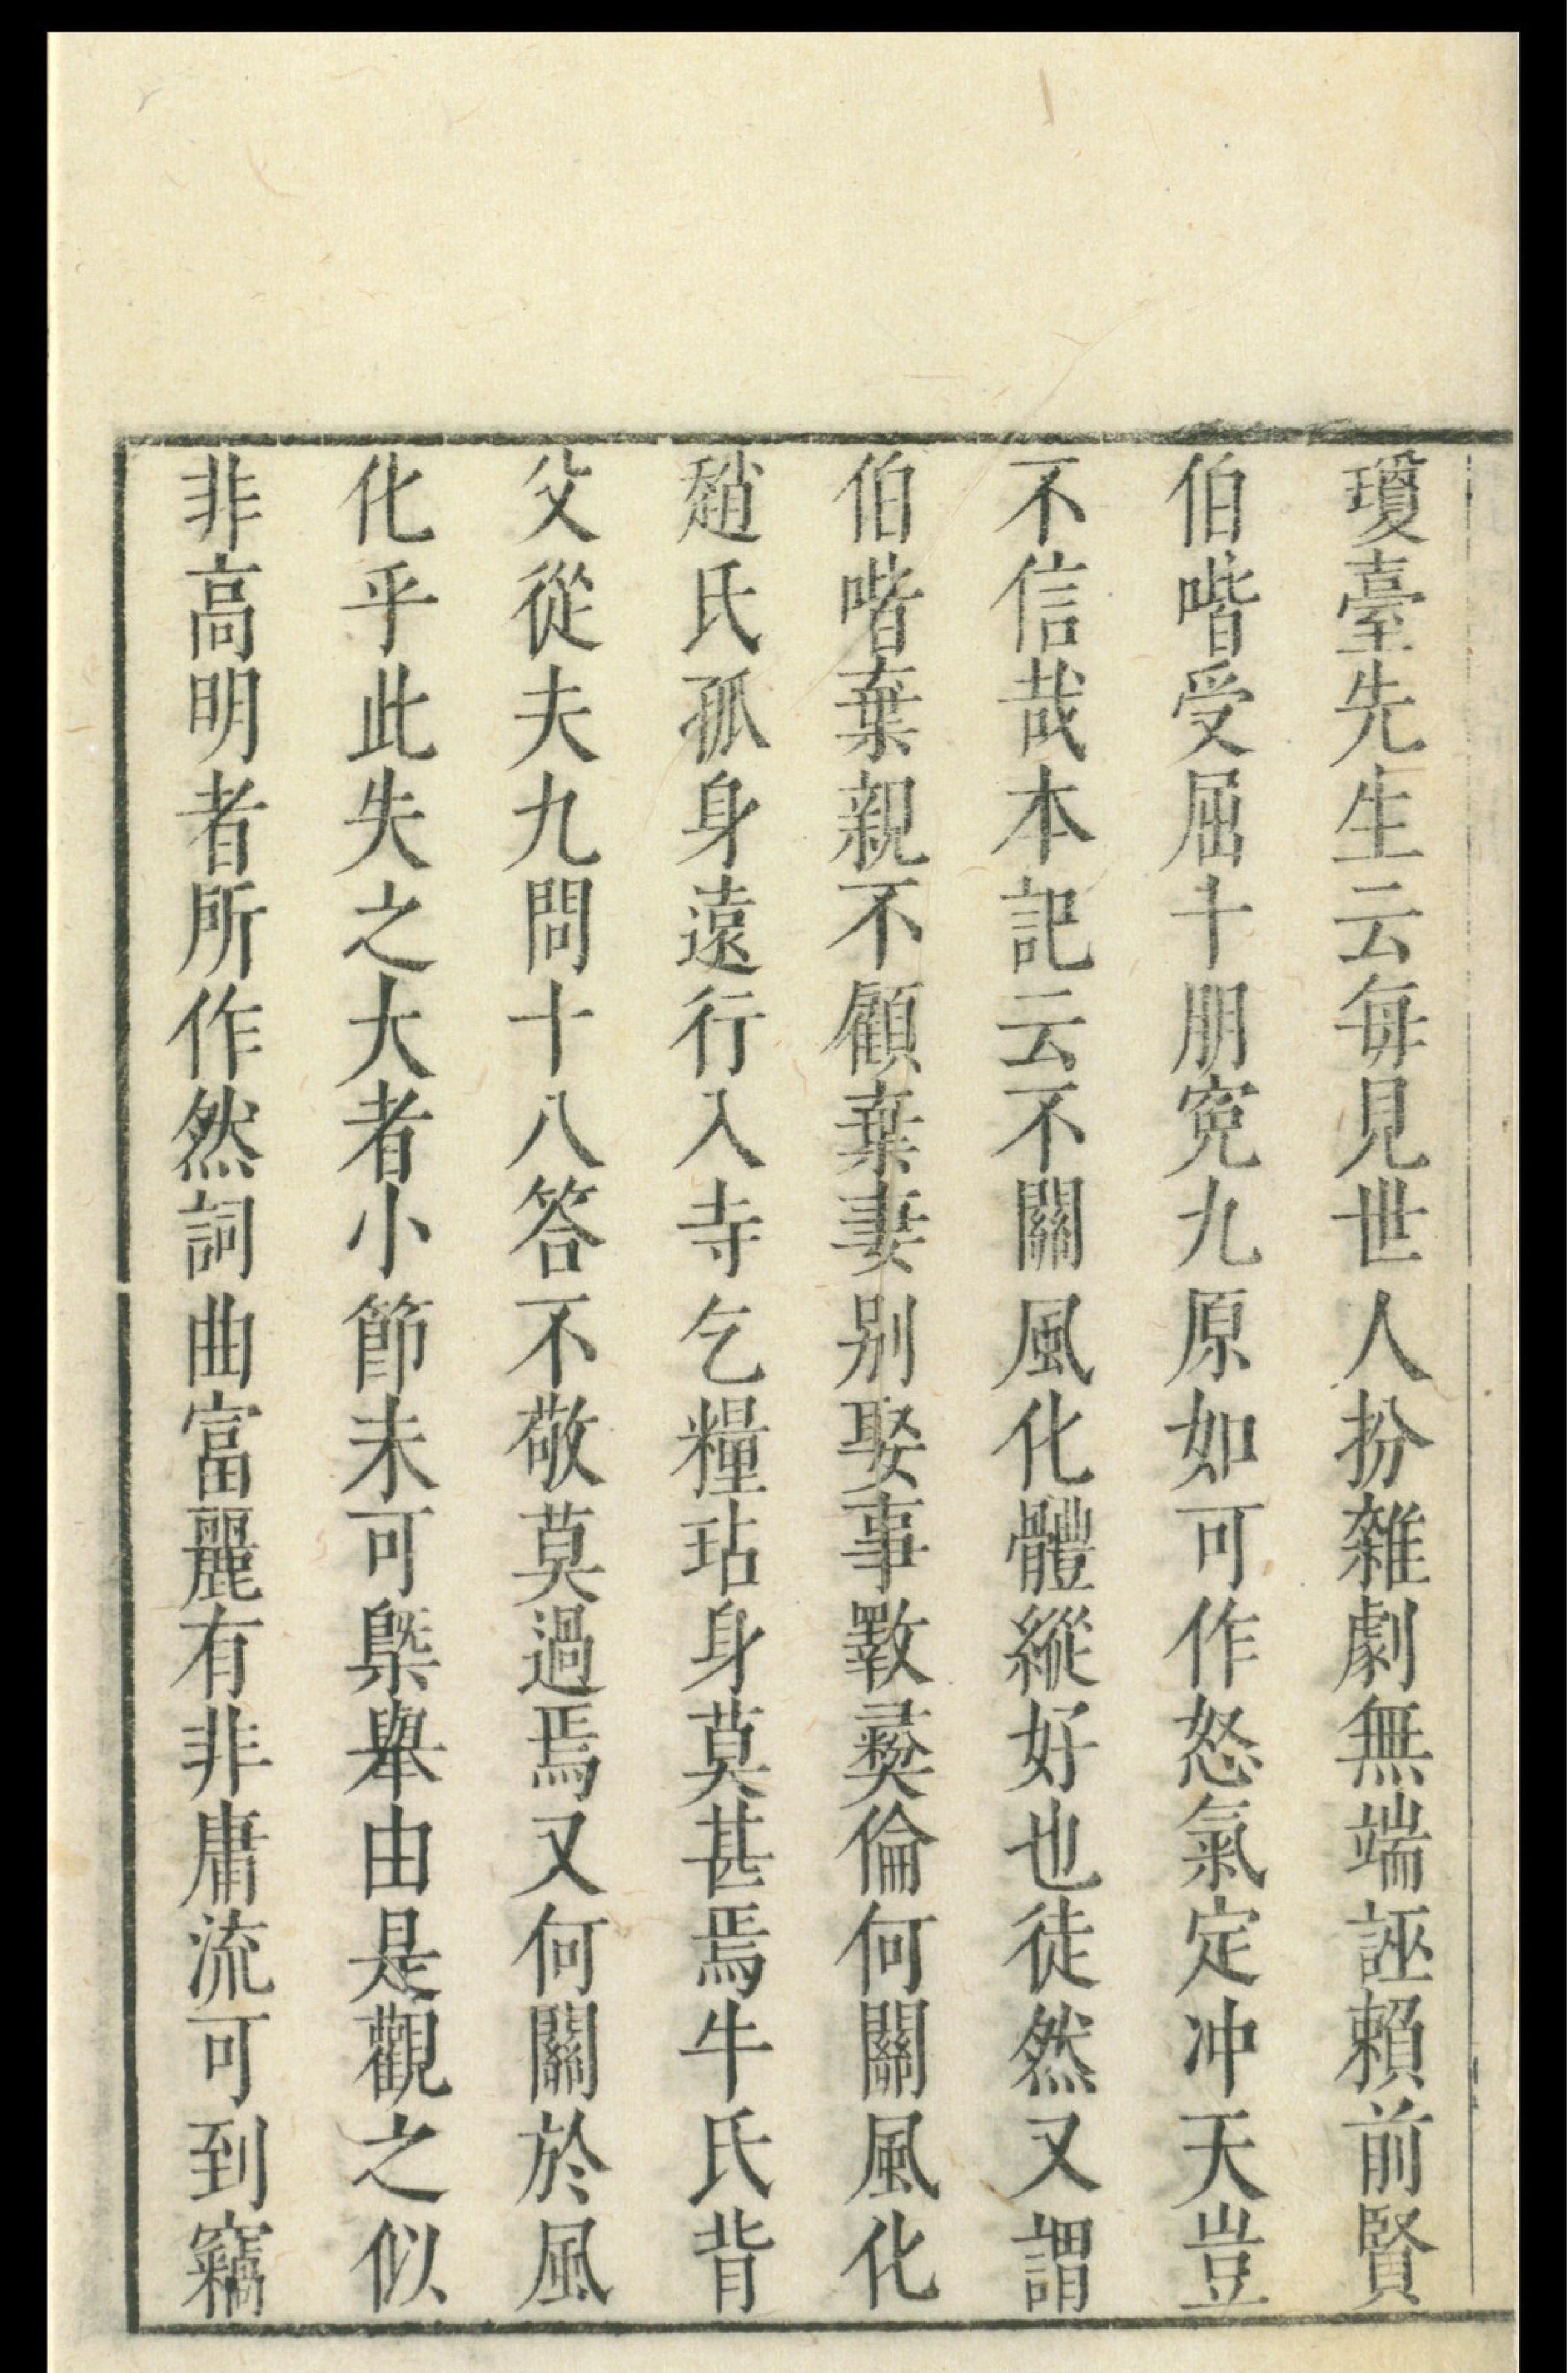 瓊臺先生云每見世人扮雜劇無端誣賴前賢
伯喈受屈十朋寃九原如可作怒氣定冲天豈
不信哉本記云不關風化體縱好也徒然又謂
伯喈棄親不顧棄妻别娶事斁彛倫何關風化
趙氏孤身遠行入寺乞糧玷身莫甚焉牛氏背
父從夫九問十八答不敬莫過焉又何關於風
化乎此失之大者小節未可槩舉由是觀之似
非高明者所作然詞曲富麗有非庸流可到竊